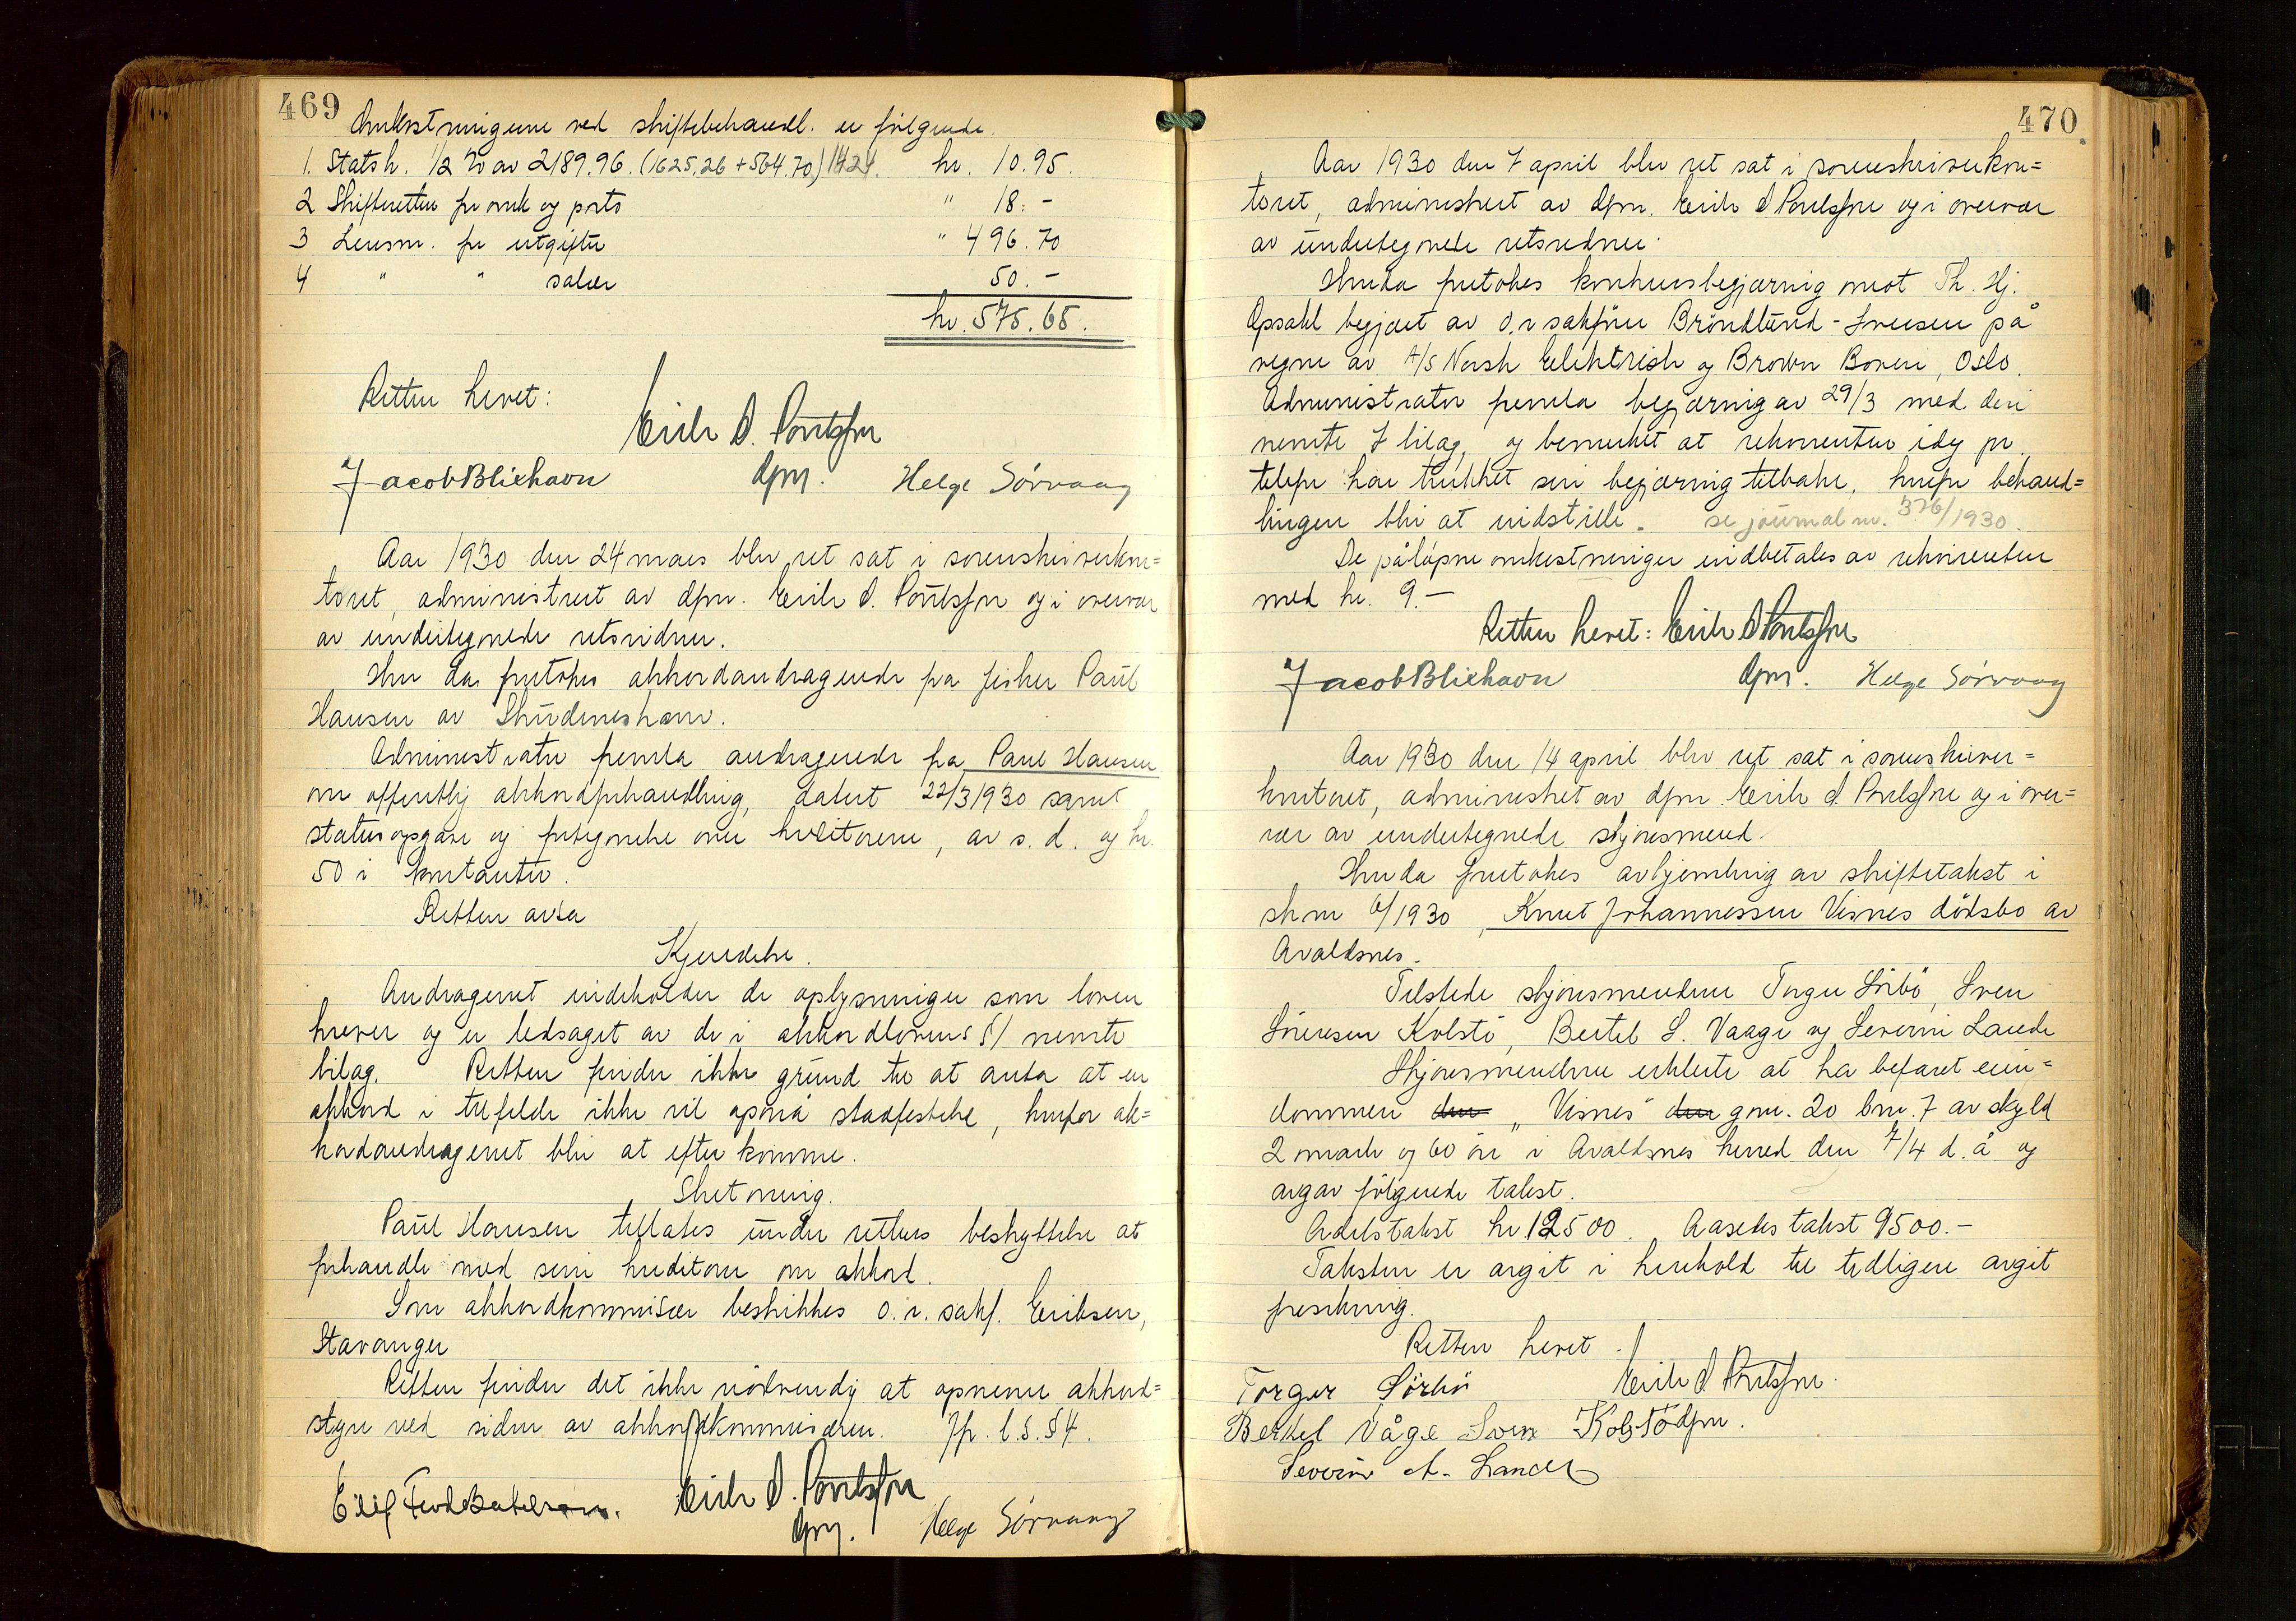 469
Omkostningene ved skiftebehandl. er følgende.
1. Statsk. 1/2 % av 2189.96. (1625,26 + 564.70) 1424. kr. 10.95.
2 Skifteretten for omk og porto " 18.-
3 Lensm. for utgifter " 496.70
4 " " salær 50.-
kr. 575.65.
Retten hevet:
Erik S. Poulsson
Jacob Blixhavn dfm. Helge Sörvaag
Aar 1930 den 24 mars blev ret sat i sorenskriverkon=
toret, administrert av dfm. Erik S. Poulsson og i overvær
av undertegnede retsvidner.
Hvor da foretokes akkordandragende fra fisker Paul
Hansen av Skudeneshavn.
Administrator fremla andragende fra Paul Hansen
om offentlig akkordforhandling, datert 22/3 1930 samt
statusopgave og fortegnelse over kreditorene, av s. d. og kr.
50 i kontanter.
Retten avsa
Kjendelse.
Andragenet indeholder de oplysninger som loven
krever og er ledsaget av de i akkordlovens § 1 nevnte
bilag. Retten finder ikke grund til at anta at en
akkord i tilfelde ikke vil opnå stadfestelse, hvorfor ak=
kordandragenet blir at efterkomme.
Slutning.
Paul Hansen tillates under rettens beskyttelse at
forhandle med sine kreditorer om akkord.
Som akkordkommisær beskikkes o. r. sakf. Eriksen,
Stavanger
Retten finder det ikke nödvendig at opnevne akkord=
styre ved siden av akkordkommisæren. Jfr. l. s. § 4.
Erik S. Poulsson
dfm. Helge Sörvaag
470
Aar 1930 den 7 april blev ret sat i sorenskriverkon=
toret, administrert av dfm. Erik S Poulsson og i overvær
av undertegnede retsvidner.
Hvorda foretokes konkursbegjæring mot Th. Hj.
Opsahl begjært av o.r sakförer Bröndlund-Iversen på
vegne av A/S Norsk Elektrisk og Brown Boveri, Oslo.
Administrator fremla begjæring av 29/3 med deri
nevnte 7 bilag, og bemerket at rekvirenten idag pr
telefon har trukket sin begjæring tilbake, hvorfor behand=
lingen blir at indstille. se journal nr. 376/1930.
De påløpne omkostninger indbetales av rekvirenten
med kr. 9.-
Retten hevet: Erik S Poulsson
Jacob Blixhavn dfm. Helge Sörvaag
Aar 1930 den 14 april blev ret sat i sorenskriver=
kontoret, administrert av dfm. Erik S. Poulsson og i over=
vær av undertegnede skjønsmend.
Hvorda foretokes avhjemling av skiftetakst i
sk nr 6/1930, Knut Johannessen Visnes dödsbo av
Avaldsnes.
Tilstede skjønsmendene Torger Sörbö, Sven
Sörensen Kolstö, Bertel S. Vaage og Severin Lande
Skjønsmendene erklerte at ha befaret eien=
dommen den "Visnes" den gnr. 20 bnr. 7 av skyld
2 mark og 60 öre i Avaldsnes herred den 7/4 d.å og
avgav følgende takst.
Odelstakst kr 12500. Aasetestakst 9500.-
Taksten er avgit i henhold til tidligere avgit
forsikring.
Retten hevet.
Erik S. Poulsson.
Torger Sörbö
Bertel Våge Sven Kolstö dfm.
Severin A. Lande